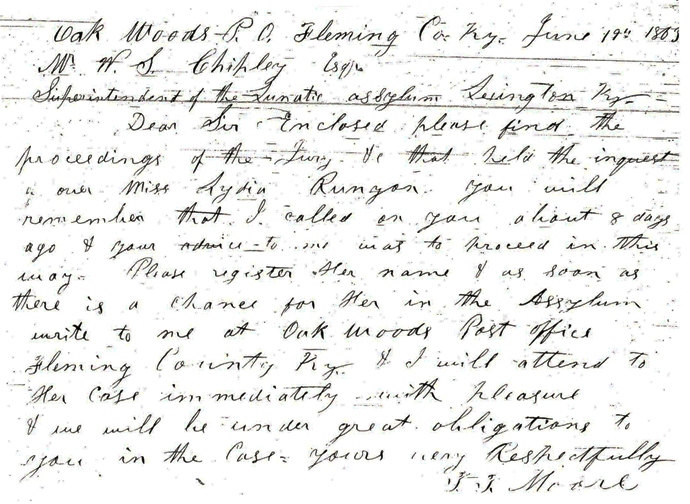 Oak Woods P. O. Fleming Co. Ky. June 19th 1863
Mr W. S. Chipley Esqr
Superintendent of the Lunatic assylum Lexington Ky.
Dear Sir Enclosed please find the
proceedings of the Jury &c that held the inquest
over Miss Lydia Runyon. you will
remember that I called on you about 8 days
ago & your advice to me was to proceed in this
way. Please register Her name & as soon as
there is a chance for Her in the Assylum
write to me at Oak Woods Post office
Fleming County Ky. & I will attend to
Her case immediately with pleasure
& we will be under great obligations to
you in the Case. yours very Respectfully
Moore